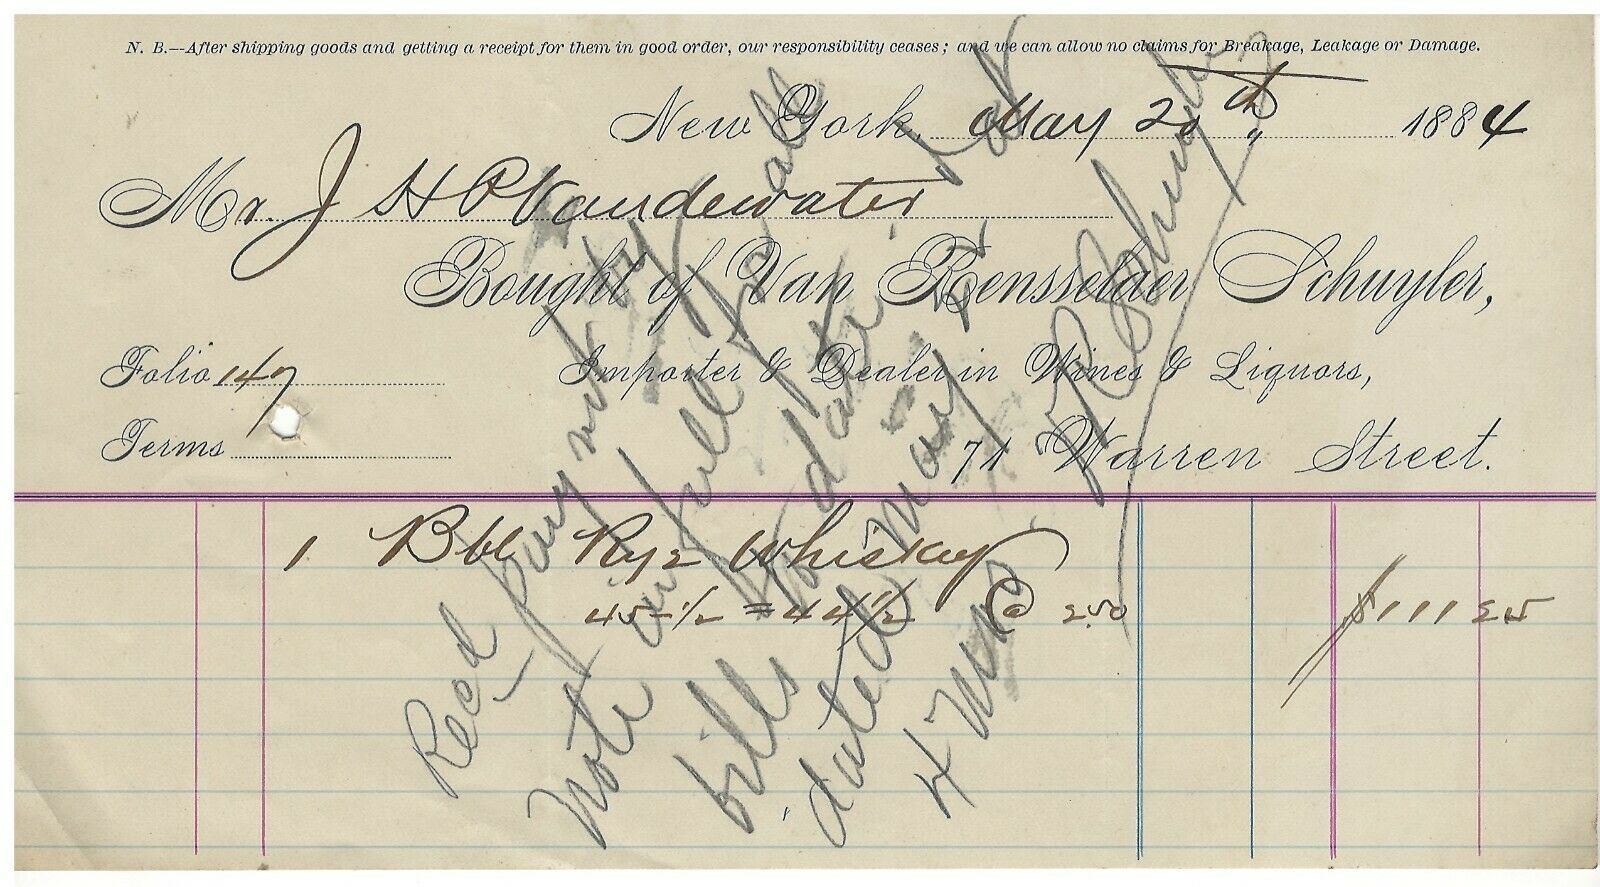 N. B.—After shipping goods and getting a receipt for them in good order, our responsibility ceases; and we can allow no claims for Breakage, Leakage or Damage.
New York, May 20th 1884
Mr. J H P Vandewater
Bought of Van Rensselaer Schuyler,
Folio 147
Importer & Dealer in Wines & Liquors,
Terms
71 Warren Street.
1 Bbl Rye Whiskey
45 1/2 = 44 1/2 @ 2.50 $111 25
Recd payment by
Note in full for all
bills to date
dated May
4 mos
V R Schuyler